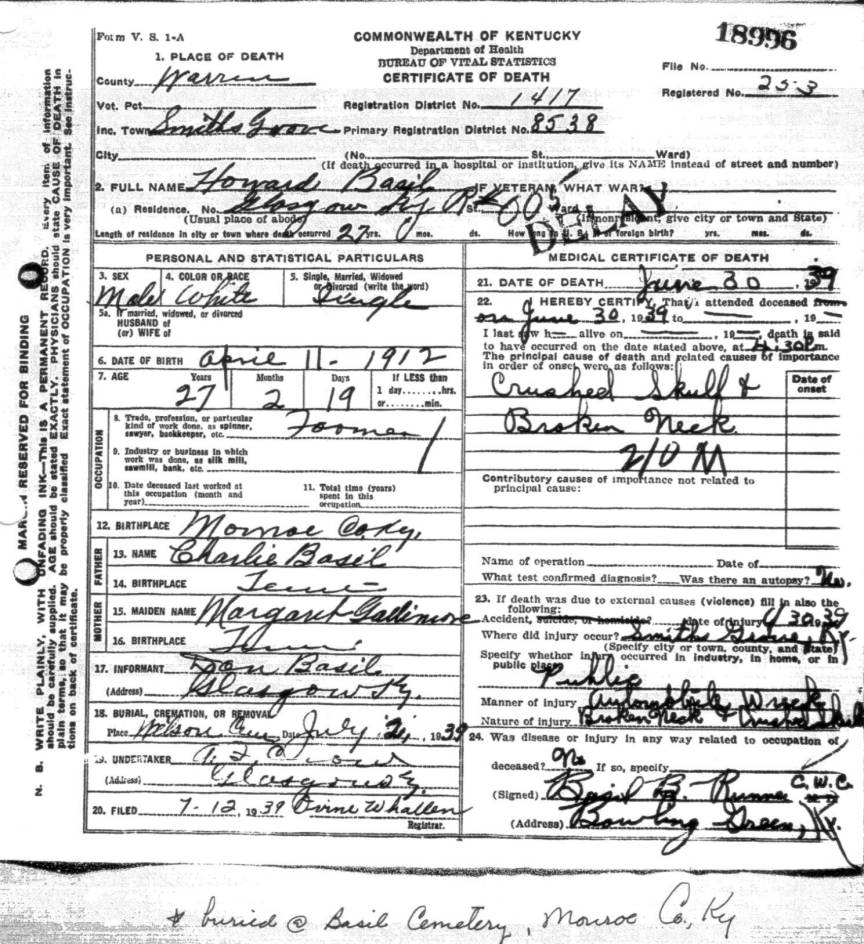 Form V. S. 1-A
COMMONWEALTH OF KENTUCKY
Department of Health
BUREAU OF VITAL STATISTICS
CERTIFICATE OF DEATH
18996
File No.
Registered No. 253
1. PLACE OF DEATH
County Warren
Vot. Pct.
Registration District No. 1417
Inc. Town Smiths Grove Primary Registration District No. 8538
City (No. St. Ward)
(If death occurred in a hospital or institution, give its NAME instead of street and number)
2. FULL NAME Howard Basil IF VETERAN, WHAT WAR
(a) Residence. No. Glasgow Ky St. Ward
(Usual place of abode) (If nonresident, give city or town and State)
DELAY
Length of residence in city or town where death occurred 27 yrs. mos. ds. How long in U. S. if of foreign birth? yrs. mos. ds.
PERSONAL AND STATISTICAL PARTICULARS
3. SEX 4. COLOR OR RACE 5. Single, Married, Widowed
or Divorced (write the word)
Male White Single
5a. If married, widowed, or divorced
HUSBAND of
(or) WIFE of
6. DATE OF BIRTH April 11 - 1912
7. AGE Years Months Days If LESS than
27 2 19 1 day........hrs.
or........min.
OCCUPATION
8. Trade, profession, or particular
kind of work done, as spinner,
sawyer, bookkeeper, etc.
9. Industry or business in which
work was done, as silk mill,
sawmill, bank, etc.
10. Date deceased last worked at
this occupation (month and
year)
11. Total time (years)
spent in this
occupation
12. BIRTHPLACE Monroe Co Ky.
FATHER
13. NAME Charlie Basil
14. BIRTHPLACE Tenn
MOTHER
15. MAIDEN NAME Margaret Gallimore
16. BIRTHPLACE Tenn
17. INFORMANT Dan Basil
(Address) Glasgow Ky.
18. BURIAL, CREMATION, OR REMOVAL
Place Nelson Cem Date July 2, 1939
19. UNDERTAKER
(Address) Glasgow Ky
20. FILED 7-12, 1939 Ovine Whallen
Registrar.
MEDICAL CERTIFICATE OF DEATH
21. DATE OF DEATH June 30, 1939
22. I HEREBY CERTIFY, That I attended deceased from
on June 30, 1939 to 19
I last saw h alive on 19 death is said
to have occurred on the date stated above, at 4:30 P.m.
The principal cause of death and related causes of importance
in order of onset were as follows:
Date of
onset
Crushed Skull &
Broken Neck
210 M
Contributory causes of importance not related to
principal cause:
Name of operation Date of
What test confirmed diagnosis? Was there an autopsy? No.
23. If death was due to external causes (violence) fill in also the
following:
Accident, suicide, or homicide? Date of injury 6/30 1939
Where did injury occur? Smiths Grove, Ky.
(Specify city or town, county, and State)
Specify whether injury occurred in industry, in home, or in
public place.
Public
Manner of injury Automobile Wreck
Nature of injury Broken Neck & Crushed Skull
24. Was disease or injury in any way related to occupation of
deceased? No If so, specify
(Signed) Basil B. Runner C. W. C.
(Address) Bowling Green, Ky.
MARGIN RESERVED FOR BINDING
N. B. WRITE PLAINLY, WITH UNFADING INK—THIS IS A PERMANENT RECORD. Every item of information
should be carefully supplied. AGE should be stated EXACTLY. PHYSICIANS should state CAUSE OF DEATH in
plain terms, so that it may be properly classified. Exact statement of OCCUPATION is very important. See instruc-
tions on back of certificate.
* buried @ Basil Cemetery, Monroe Co, Ky